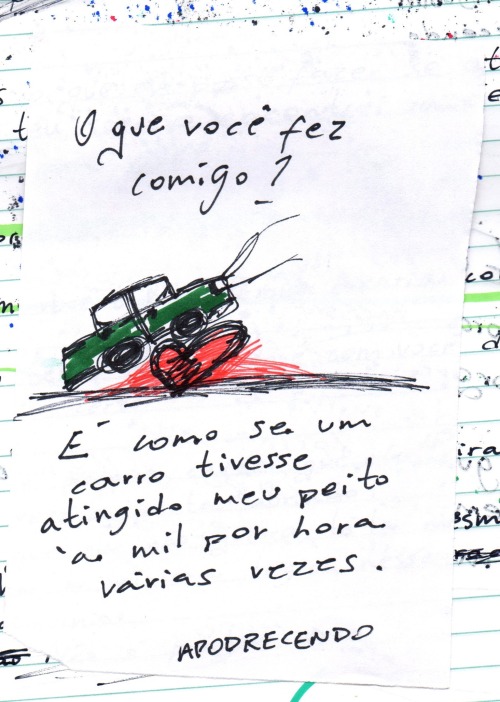 O que você fez
comigo?
É como se um
carro tivesse
atingido meu peito
à mil por hora
várias vezes.
APODRECENDO